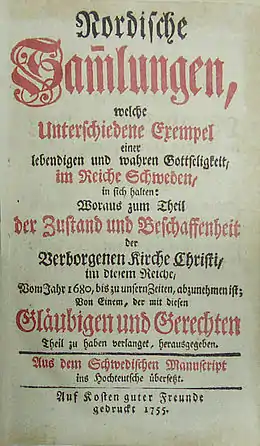 Nordische
Sam̄lungen,
welche
Unterschiedene Exempel
einer
lebendigen und wahren Gottseligkeit,
im Reiche Schweden,
in sich halten:
Woraus zum Theil
der Zustand und Beschaffenheit
der
Verborgenen Kirche Christi,
im diesem Reiche,
Vom Jahr 1680, bis zu unsern Zeiten, abzunehmen ist;
Von Einem, der mit diesen
Gläubigen und Gerechten
Theil zu haben verlanget, herausgegeben.
Aus dem Schwedischen Manuscript
ins Hochteutsche übersetzt.
Auf Kosten guter Freunde
gedruckt 1755.